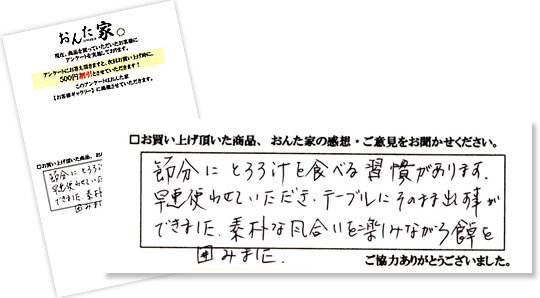 おんた家。
現在、商品を買っていただいたお客様に
アンケートを実施しております。
アンケートにお答え頂きますと、次回お買い上げ時に、
500円割引とさせていただきます!
このアンケートはおんた家
【お客様ギャラリー】に掲載させていただきます。
□お買い上げ頂いた商品、おん
節分にとろろ汁
早速使わせていただ
できました。素朴
囲みまし
□お買い上げ頂いた商品、おんた家の感想・ご意見をお聞かせください。
節分にとろろ汁を食べる習慣があります。
早速使わせていただき、テーブルにそのまま出す事が
できました。素朴な風合いを楽しみながら食卓を
囲みました。
ご協力ありがとうございました。